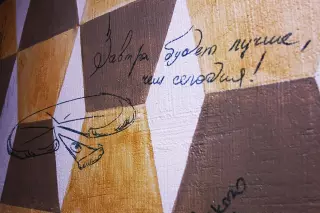 Завтра будет лучше,
чем сегодня!